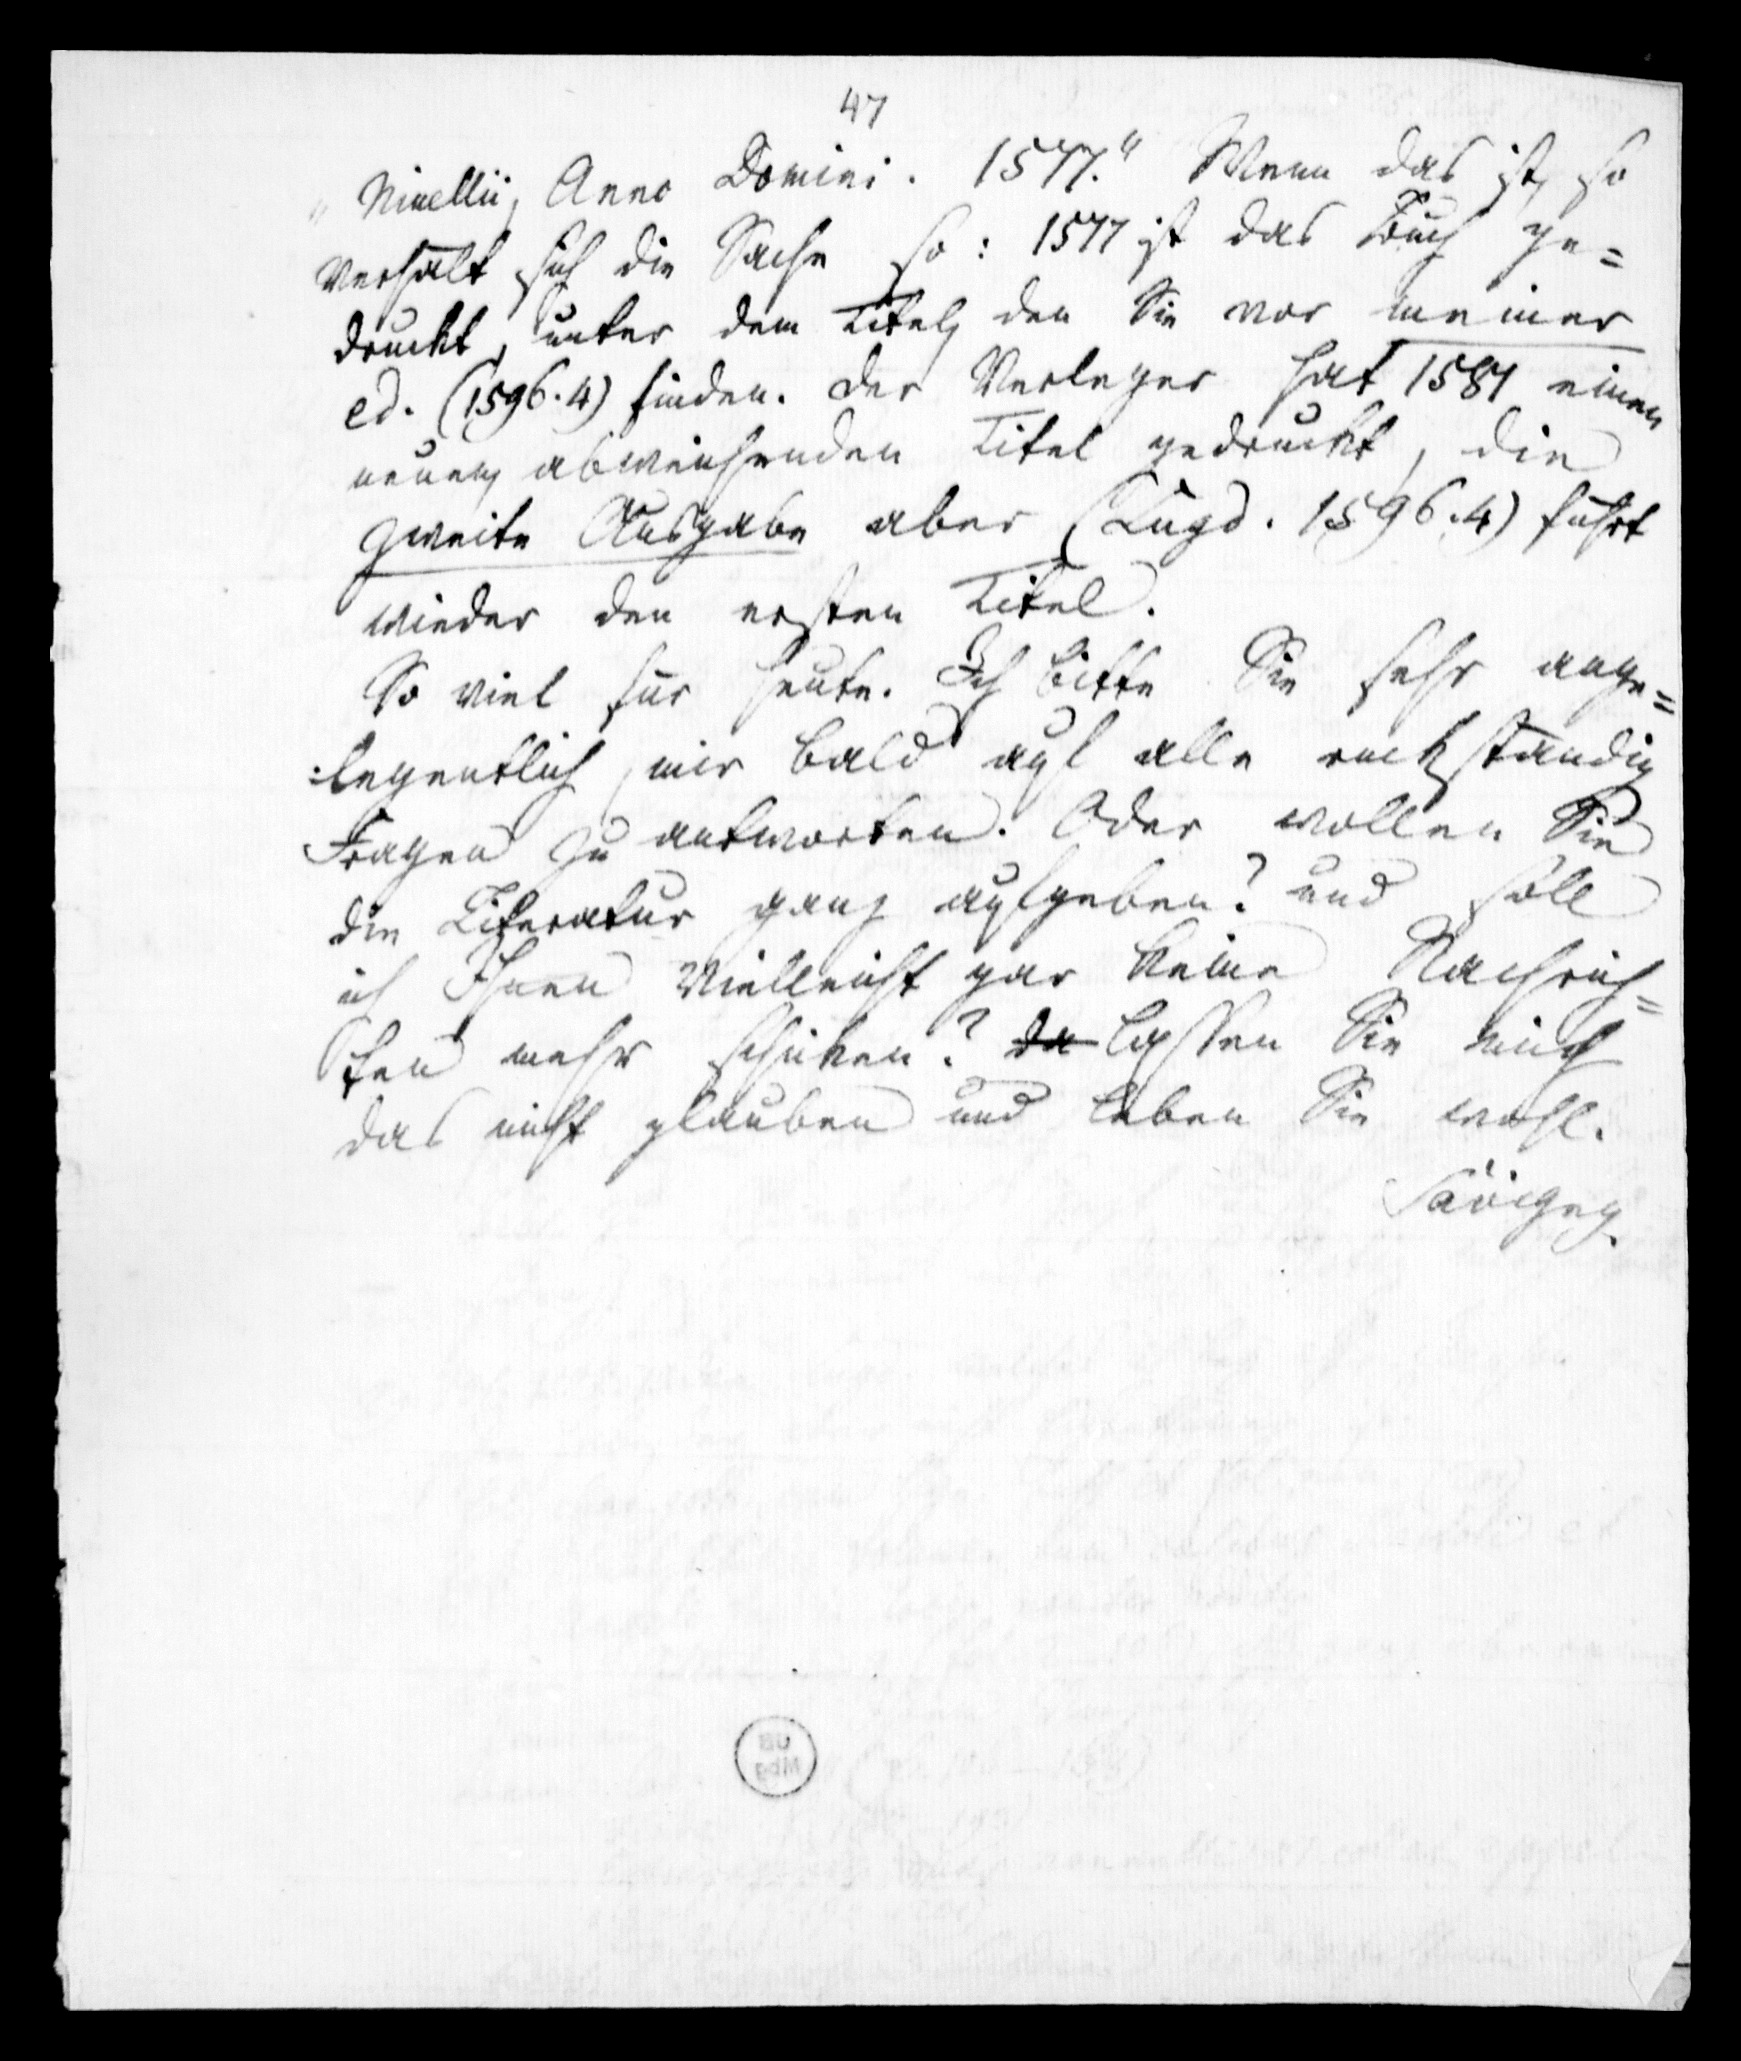 47
„Nivellii, Anno Domini. 1577.“ Wenn das ist, so
verhält sich die Sache so: 1577 ist das Buch ge=
druckt, unter dem Titel, den Sie vor meiner
ed. (1596. 4) finden. Der Verleger hat 1581 einen
neuen, abweichenden Titel gedruckt, die
zweite Ausgabe aber (Lugd. 1596. 4) führt
wieder den ersten Titel.
So viel für heute. Ich bitte Sie sehr ange=
=legentlich, mir bald auf alle rückständig
Fragen zu antworten. Oder wollen Sie
die Literatur ganz aufgeben? und soll
ich Ihnen vielleicht gar keine Nachrich=
ten mehr schicken? da lassen Sie mich
das nicht glauben und leben Sie wohl.
UB
Mbg